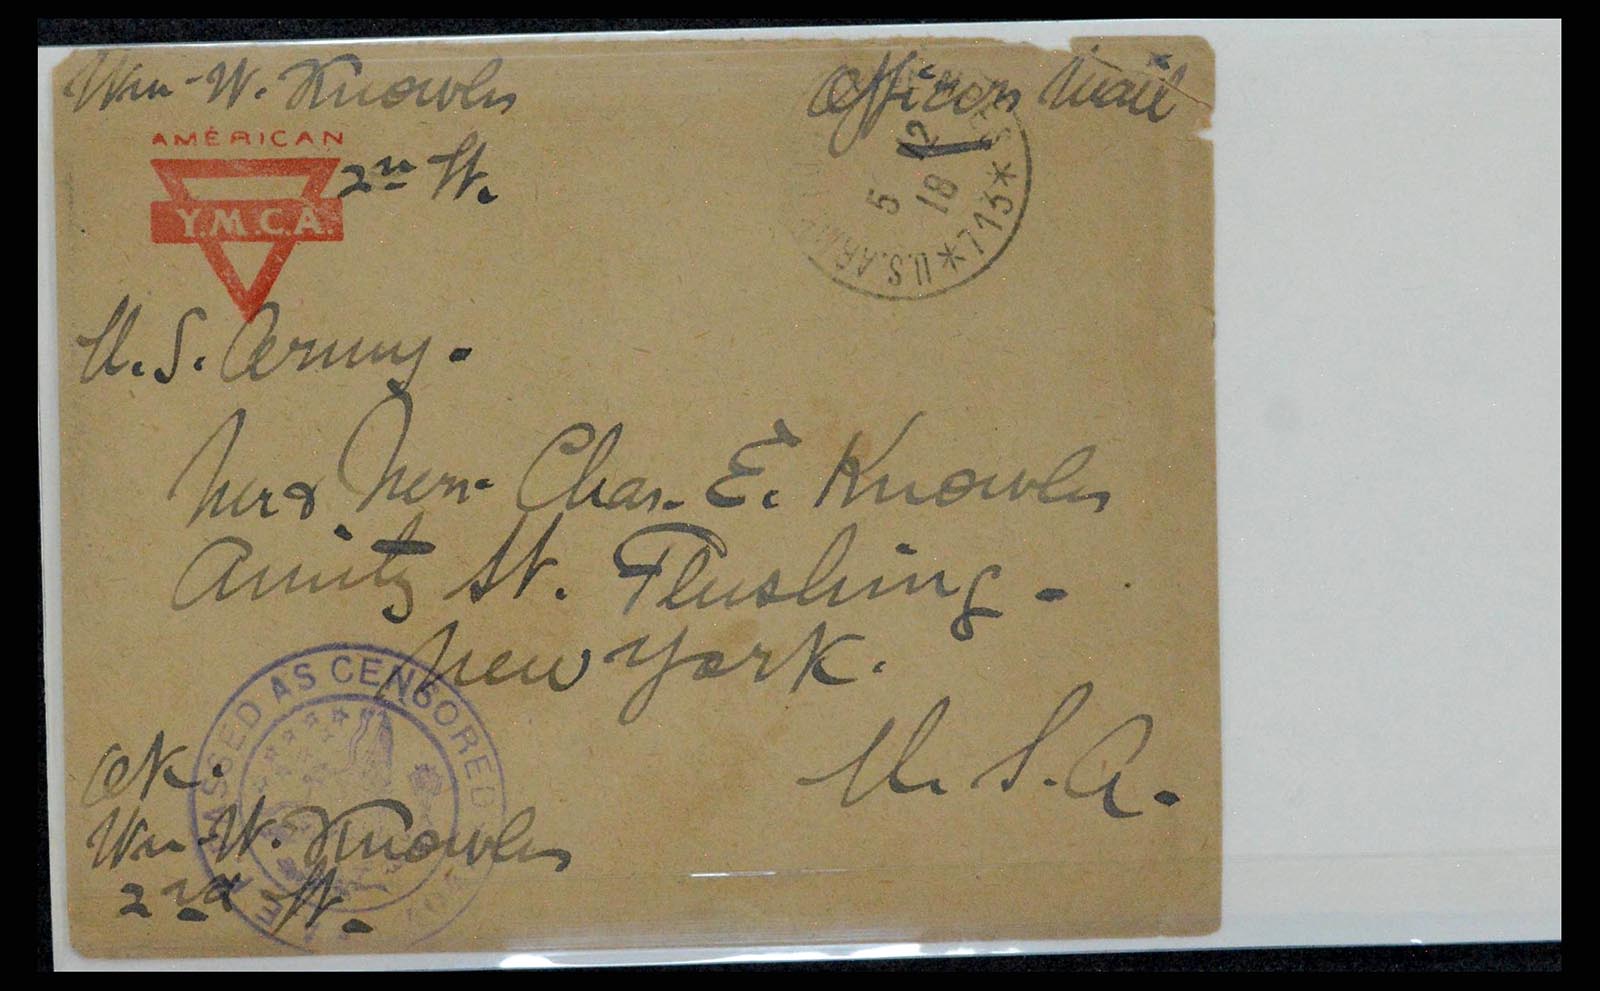 Wm. W. Knowles
Officers Mail
AMÉRICAN
2nd Lt.
Y.M.C.A.
U.S. Army.
5 12 18
* U.S. ARMY 713 *
Mr & Mrs. Chas. E. Knowles
Amity St. Flushing -
New York.
U.S.A.
PASSED AS CENSORED
OK.
Wm. W. Knowles
2nd Lt.